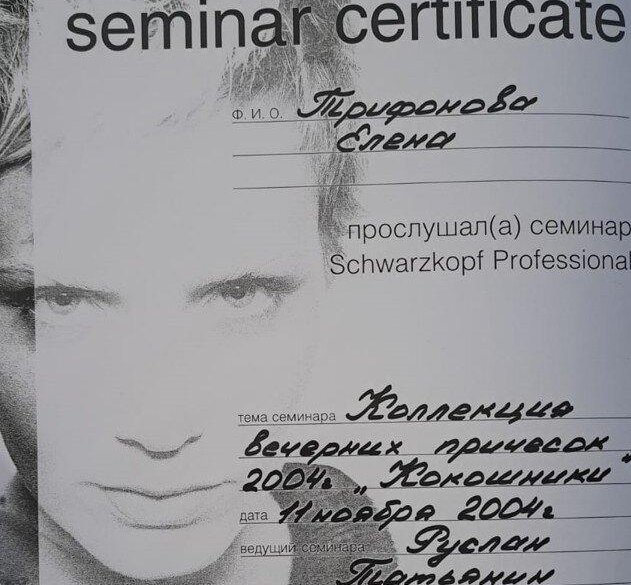 seminar certificate
Ф. И. О. Трифонова
Елена
прослушал(а) семинар
Schwarzkopf Professional
тема семинара Коллекция
вечерних причесок
2004г „Кокошники"
дата 11 ноября 2004г
ведущий семинара Руслан
Татьянин